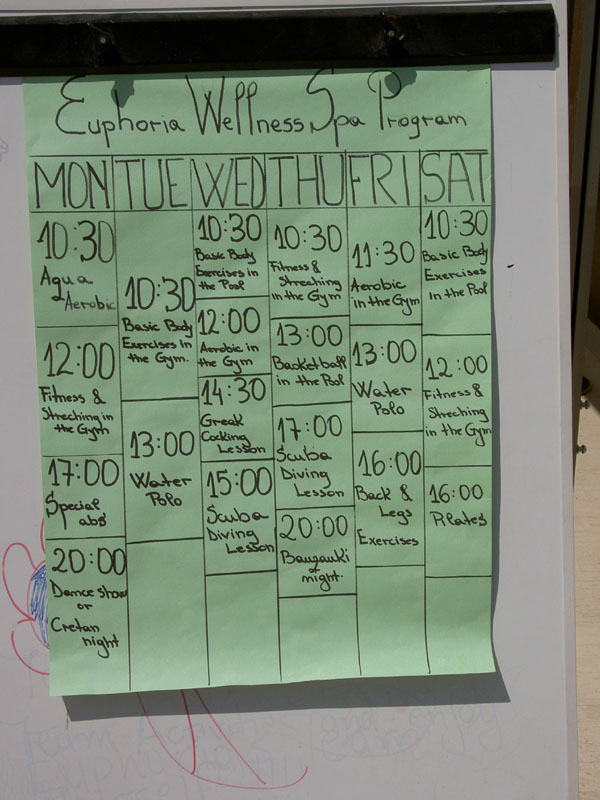 Euphoria Wellness Spa Program
MON TUE WED THU FRI SAT
10:30
Aqua
Aerobic
12:00
Fitness &
Streching in
the Gym
17:00
Special
abs
20:00
Dance show
or
Cretan
night
10:30
Basic Body
Exercises in
the Gym.
13:00
Water
Polo
10:30
Basic Body
Exercises in
the Pool
12:00
Aerobic in
the Gym
14:30
Greak
Cocking
Lesson
15:00
Scuba
Diving
Lesson
10:30
Fitness &
Streching
in the Gym
13:00
Basketball
in the Pool
17:00
Scuba
Diving
Lesson
20:00
Bauzauki
night.
11:30
Aerobic
in the Gym
13:00
Water
Polo
16:00
Back &
Legs
Exercises
10:30
Basic Body
Exercises
in the Pool
12:00
Fitness &
Streching
in the Gym
16:00
Pilates
Team Activities and enjoy